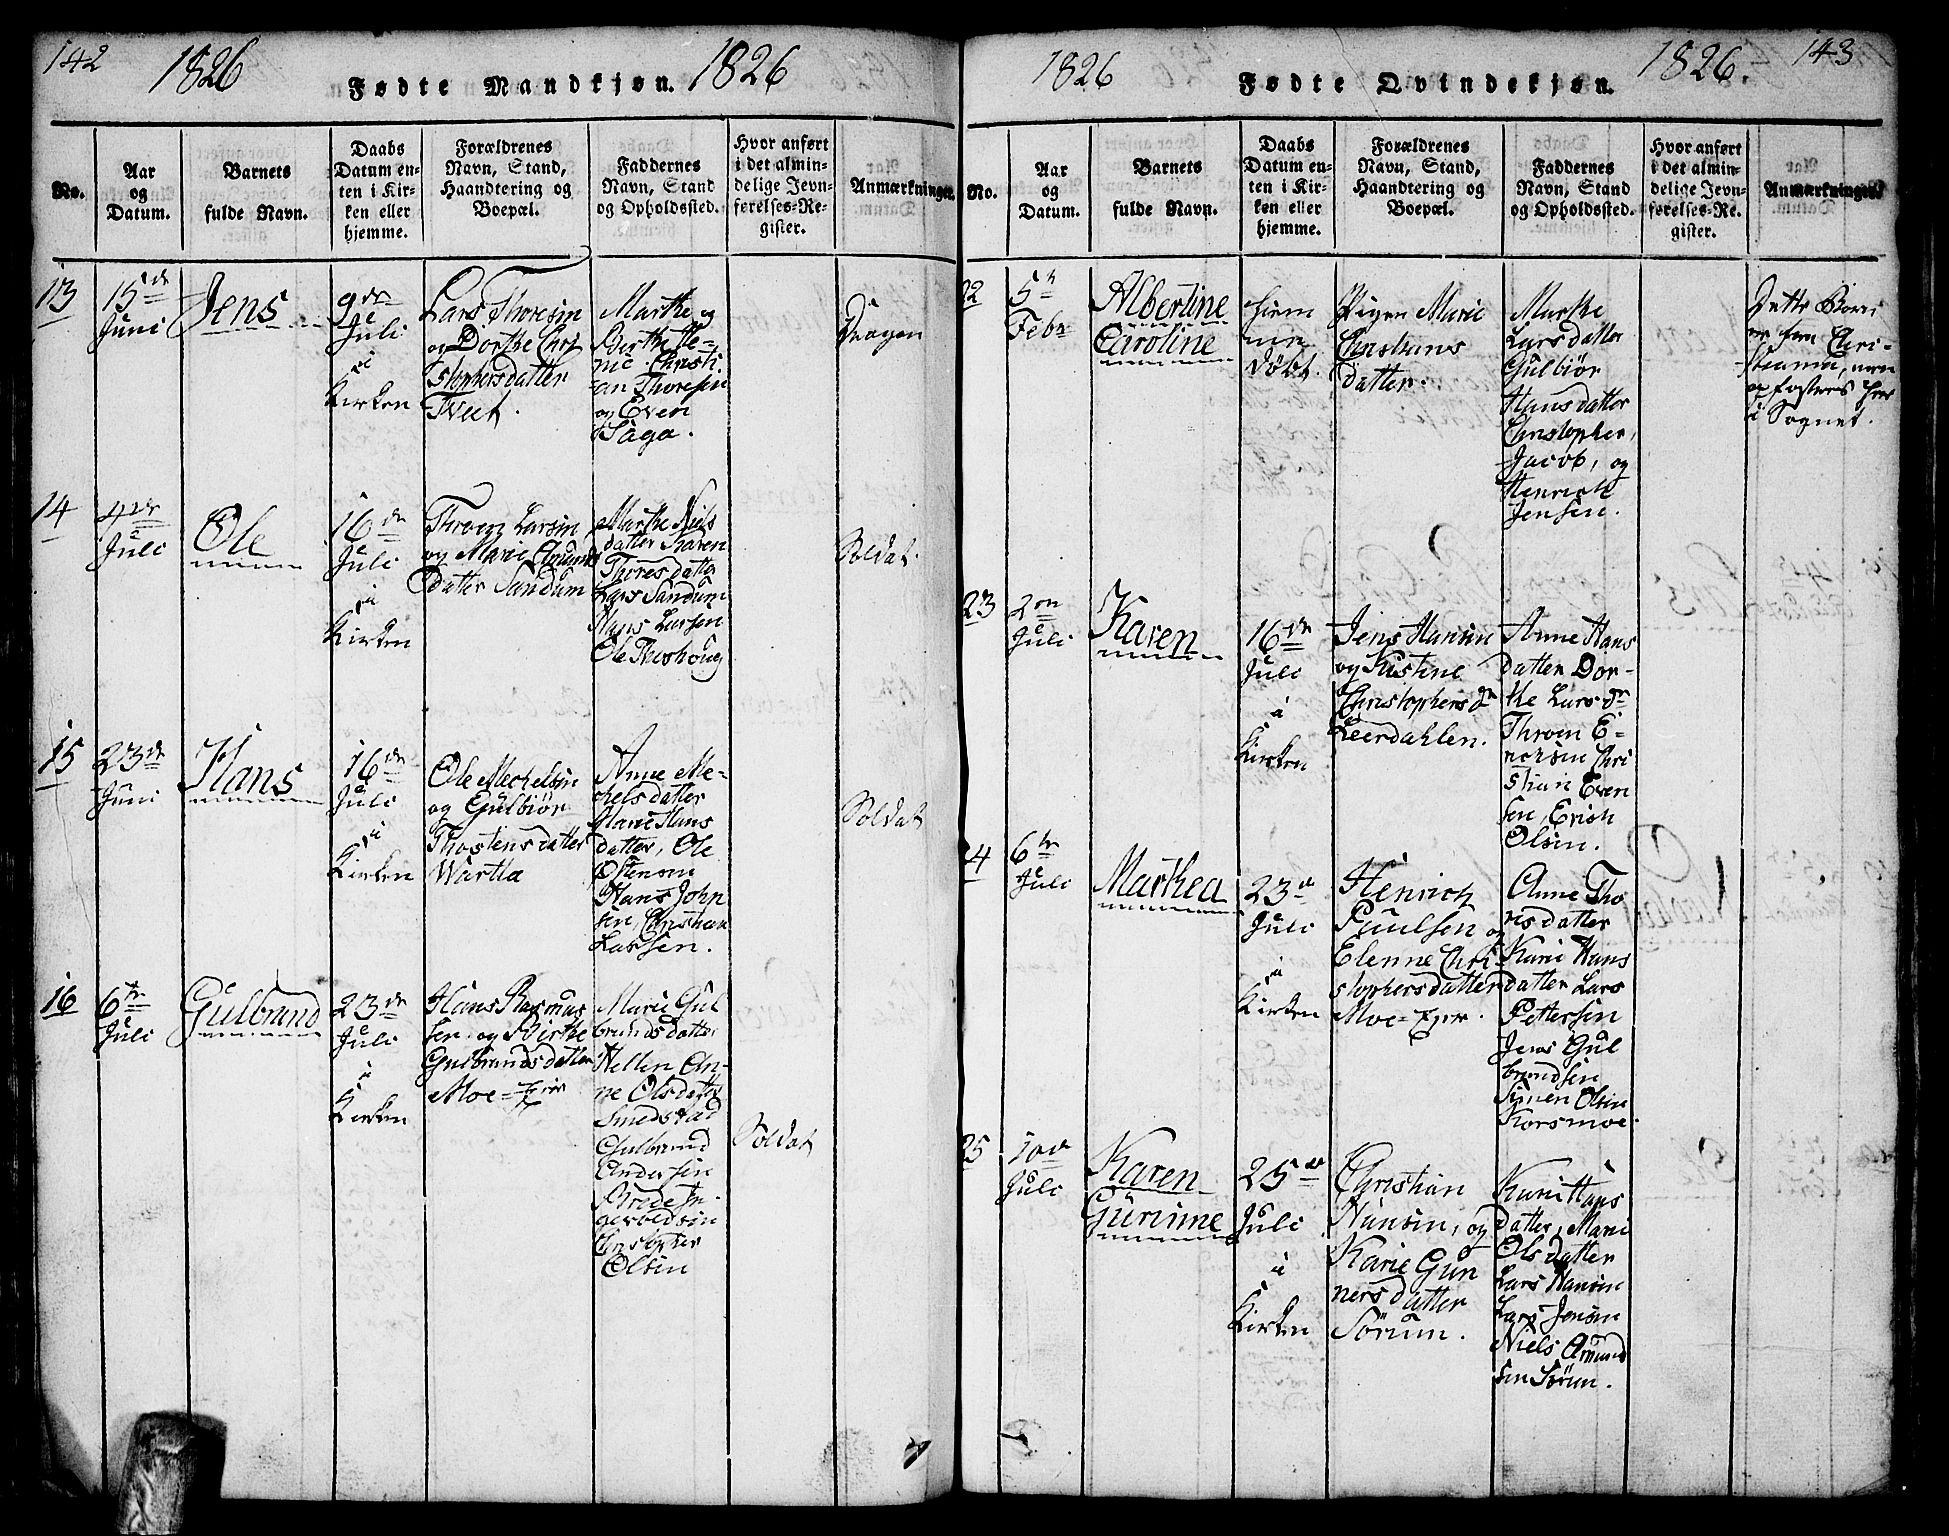 142
1826
Fødte Mandkjøn.
1826
No.
Aar
og
Datum.
Barnets
fulde Navn.
Daabs
Datum en-
ten i Kir-
ken eller
hjemme.
Forældrenes
Navn, Stand,
Haandtering og
Boepæl.
Faddernes
Navn, Stand
og Opholdssted.
Hvor anført
i det almin-
delige Jevn-
førelses-Re-
gister.
Anmærkninger.
13
15de
Juni
Jens
9de
Juli
i
Kirken
Lars Thoresen
og Dorthe Chri
stophersdatter
Tveet.
Marthe og
Berthe He-
nie Christi-
an Thoresen
og Even
Saga.
Dragon
14
4de
Juli
Ole
16de
Juli
i
Kirken
Throen Larsen
og Marie Amunds
datter Sandum
Marthe Niels
datter Karen
Thoresdatter
Lars Sandum
Hans Larsen
Ole
Soldat.
15
23de
Juni
Hans
16de
Juli
i
Kirken
Ole Mechelsen
og Gulbiør
Thostensdatter
Wartha
Anne Me-
chelsdatter
Marie Hans
datter, Ole
Ostensen
Hans John
sen, Christian
Larsen.
Soldat
16
6te
Juli
Gulbrand
23de
Juli
i
Kirken
Hans Rasmus
sen og Birthe
Gulbrandsdatter
Moe=Eier
Marie Gul
brandsdatter
Hellen An-
ne Olsdatter
Smedstad
Gulbrand
Andersen
Brede In-
gevoldsen
Christopher
Olsen
Soldat
143
1826
Fødte Qvindekjøn.
1826.
No.
Aar
og
Datum.
Barnets
fulde Navn.
Daabs
Datum en-
ten i Kir-
ken eller
hjemme.
Forældrenes
Navn, Stand,
Haandtering og
Boepæl.
Faddernes
Navn, Stand
og Opholdssted.
Hvor anført
i det almin-
delige Jevn-
førelses-Re-
gister.
Anmærkninger
22
5te
Febr
Albertine
Caroline
hjem
me
døbt.
Pigen Marie
Christians
datter.
Marthe
Larsdatter
Gulbiør
Hansdatter
Christopher,
Jacob, og
Henrich
Jensen.
Dette Barn
er fra Chri-
stiania, men
opfostres her
i Sognet.
23
2den
Juli
Karen
16de
Juli
i
Kirken
Jens Hansen
og Kistine
Christophersdr
Leerdahlen.
Anne Hans
datter Dor-
the Larsdr
Throen E-
versen Chri
stian Even
sen, Erich
Olsen.
4
6te
Juli
Marthea
23de
Juli
i
Kirken
Henrich
Paulsen og
Elenne Chri
stophersdatter
Moe=Eier.
Anne Tho
resdatter
Karie Hans
datter Lars
Pettersen
Jens Gul
brandsen
Simen Olsen
Korsmoe.
25
10de
Juli
Karen
Gurinne
25de
Juli
i
Kirken
Christian
Hansen, og
Karie Gun
nersdatter
Sörum.
Karie Hans
datter, Marie
Olsdatter
Lars Hansen
Lars Jensen
Niels Amund
sen Sörum.